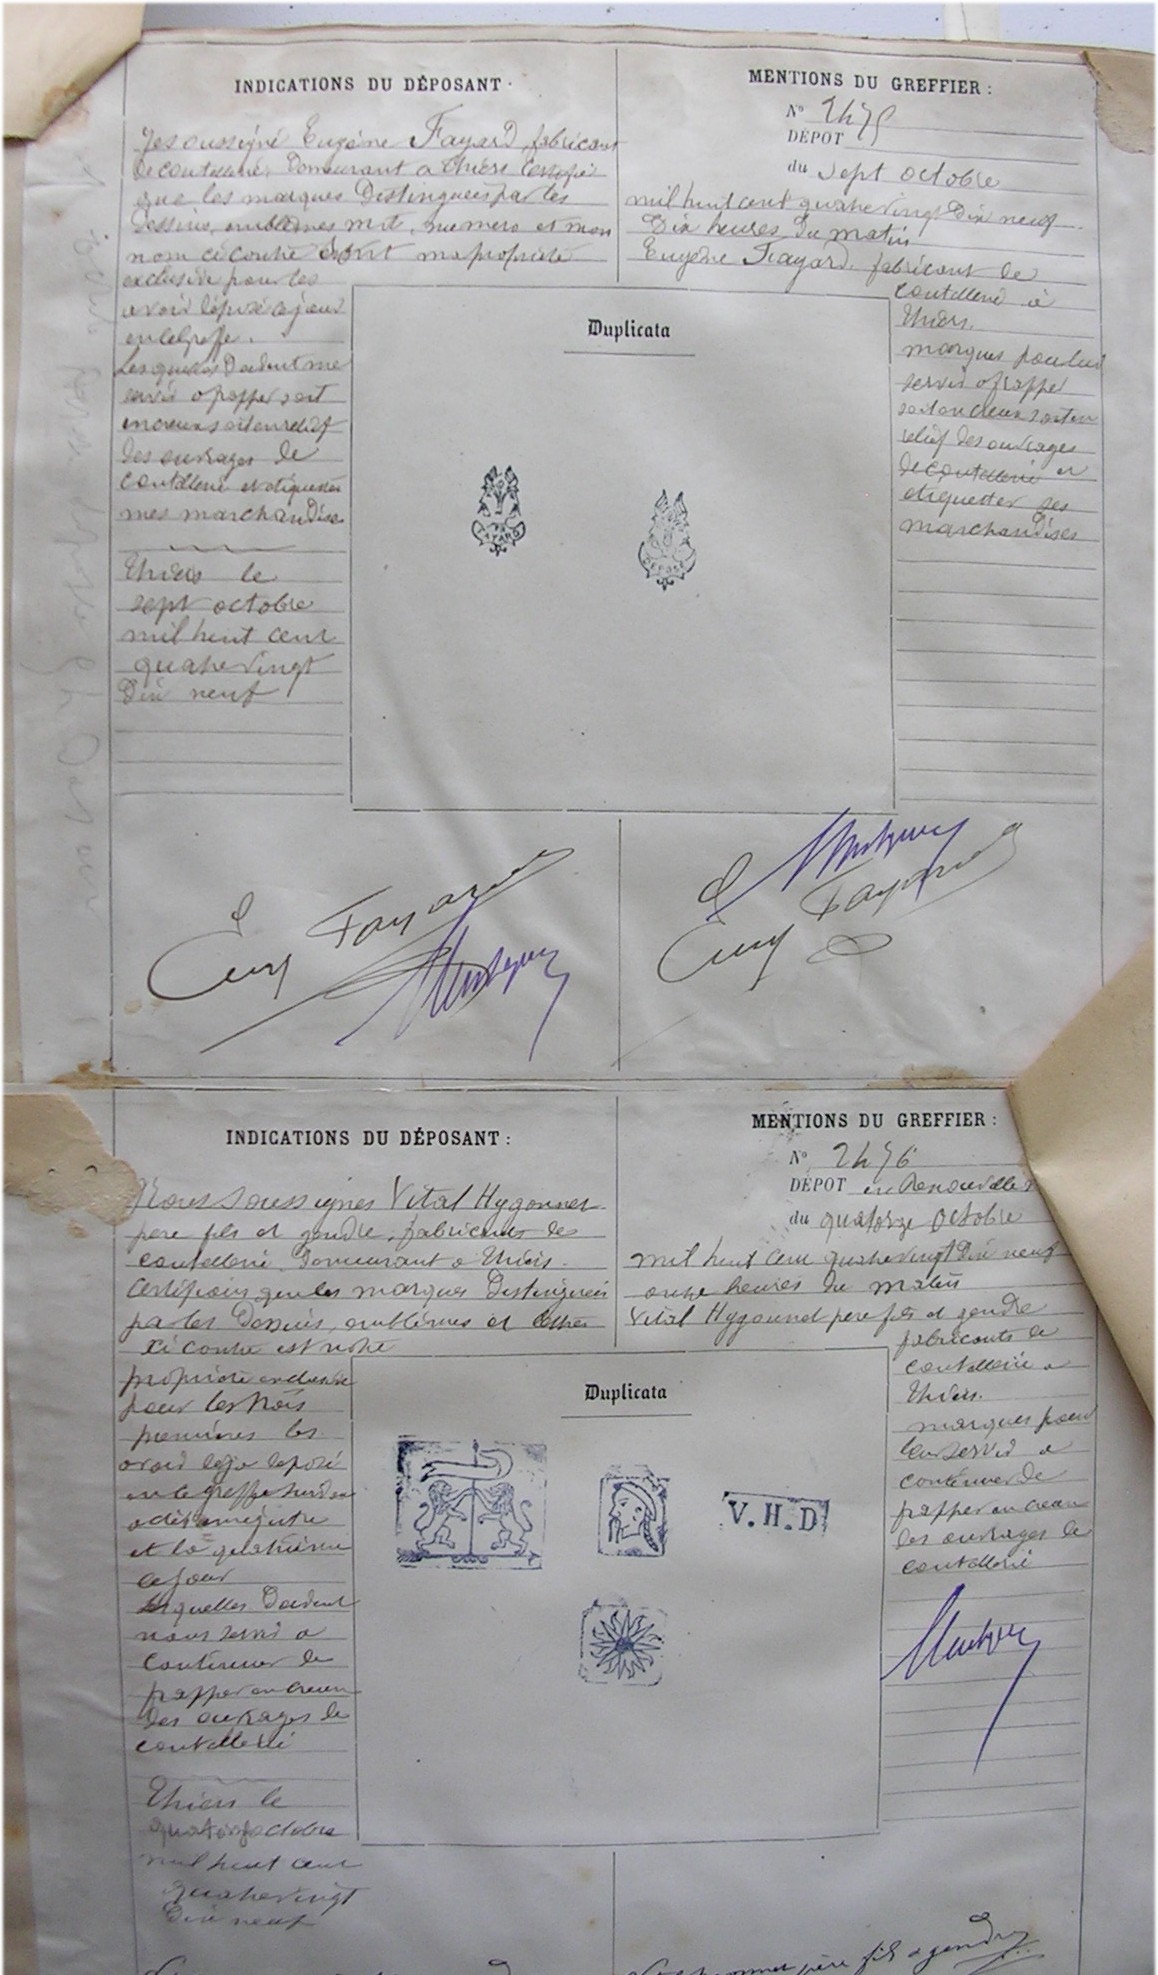 INDICATIONS DU DÉPOSANT ·
Je soussigné Eugène Fayard, fabricant
de coutellerie, Domeurant a Thiers Certifie
que les marques Distinguées par les
Dessins, emblèmes mot, numero et mon
nom ci contre est ma propriété
exclusive pour les
avoir déposé ce jour
en le greffe.
Lesquelles Doivent me
servir a frapper soit
en creux soit en relief
des ouvrages de
coutellerie et etiqueter
mes marchandises
Thiers le
sept octobre
mil huit cent
quatre vingt
Dix neuf
MENTIONS DU GREFFIER :
N° 2475
DÉPOT
du sept octobre
mil huit cent quatre vingt Dix neuf
Dix heures du matin
Eugène Fayard fabricant de
coutellerie à
Thiers.
marques pour lui
servir a frapper
soit en creux soit en
relief des ouvrages
de coutellerie et
etiquetter ses
marchandises
Duplicata
FAYARD
DEPOSÉ
Eug Fayard
Eug Fayard
INDICATIONS DU DÉPOSANT :
Nous soussignes Vital Hygonnet
pere fils et gendre, fabricants de
coutellerie Domeurant a Thiers.
Certifions que les marques Distinguées
par les Dessins, emblèmes et lettres
ci contre est notre
propriété exclusive
pour les trois
premières les
avoir deja deposé
en ce greffe
et la quatrième
ce jour
Lesquelles Doivent
nous servir a
continuer de
frapper en creux
des ouvrages de
coutellerie
Thiers le
quatorze octobre
mil huit cent
quatre vingt
Dix neuf
MENTIONS DU GREFFIER :
N° 2476
DÉPOT en Renouvelle
du quatorze Octobre
mil huit cent quatre vingt Dix neuf
onze heures du matin
Vital Hygonnet pere fils et gendre
fabricants de
coutellerie a
Thiers.
marques pour
leur servir a
continuer de
frapper en creux
des ouvrages de
coutellerie
Duplicata
V.H.D
père fils & gendre